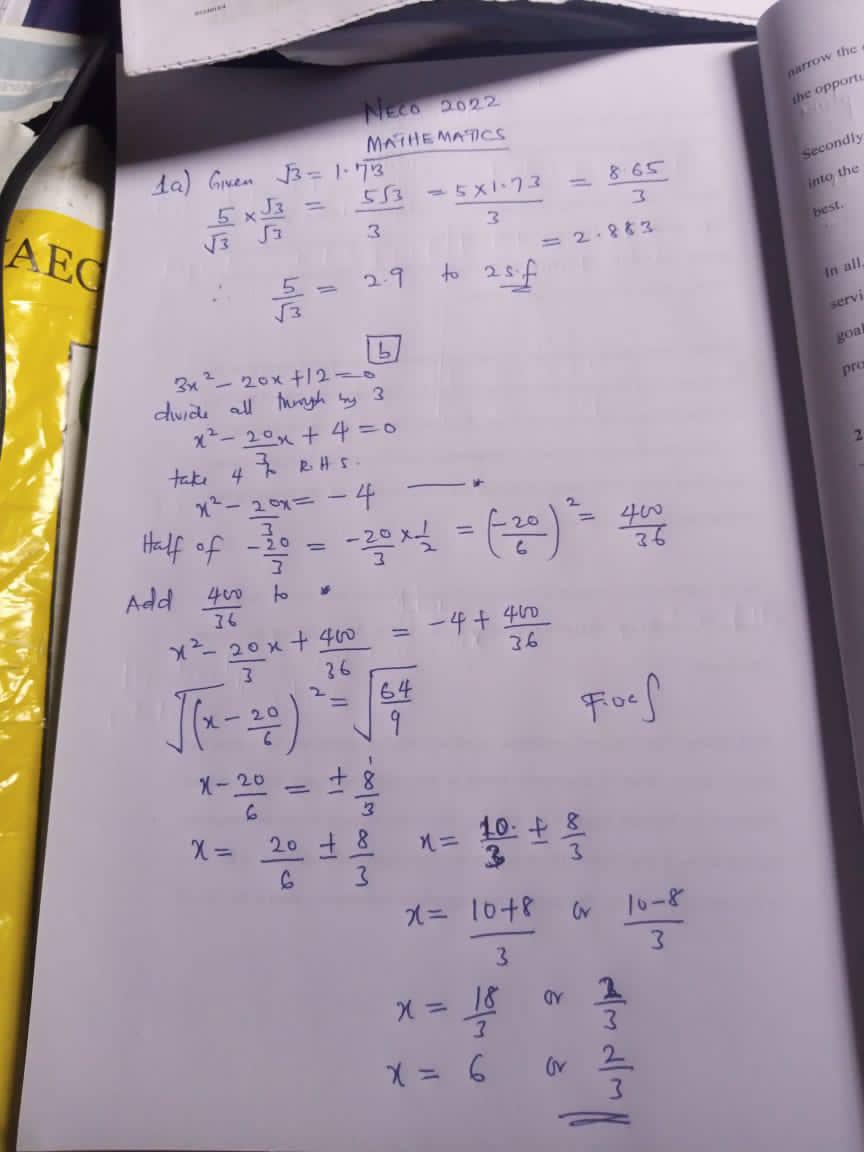 NECO 2022
MATHEMATICS
1a) Given √3 = 1.73
5/√3 × √3/√3 = 5√3/3 = 5×1.73/3 = 8.65/3
= 2.883
∴ 5/√3 = 2.9 to 2s.f
b
3x² - 20x + 12 = 0
divide all through by 3
x² - 20x/3 + 4 = 0
take 4 to R.H.S.
x² - 20x/3 = -4 — *
Half of -20/3 = -20/3 × 1/2 = (-20/6)² = 400/36
Add 400/36 to *
x² - 20/3 x + 400/36 = -4 + 400/36
√(x - 20/6)² = √64/9
x - 20/6 = ± 8/3
x = 20/6 ± 8/3 x = 10/3 ± 8/3
x = 10+8/3 or 10-8/3
x = 18/3 or 2/3
x = 6 or 2/3
AEC
narrow the
the opportu
Secondly
into the
best.
In all,
servi
goal
pro
2